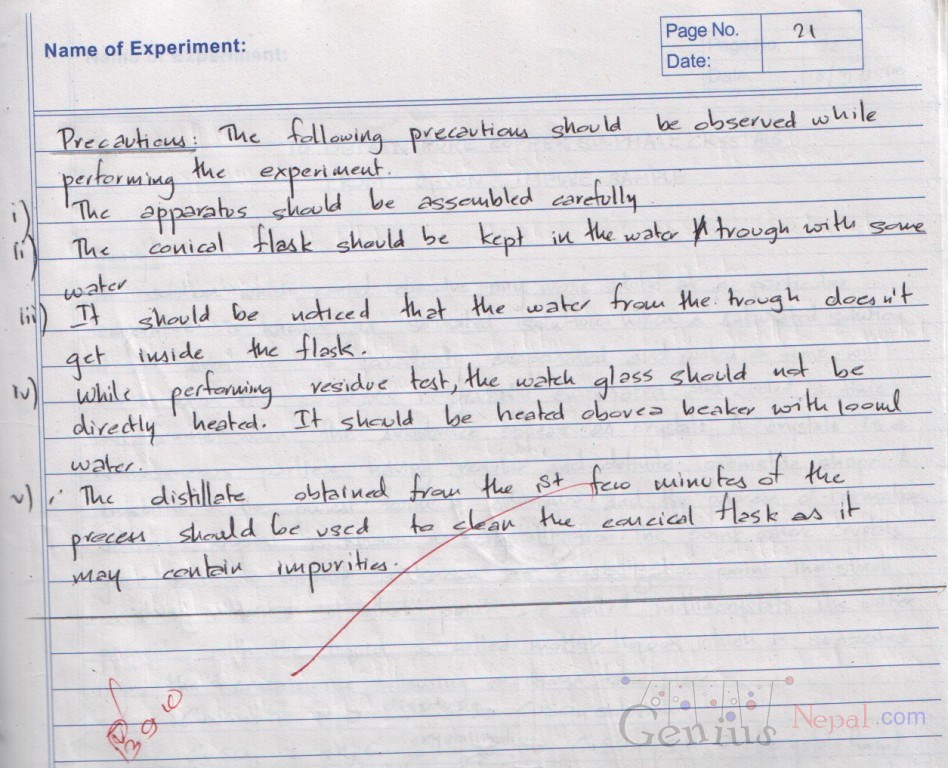 Name of Experiment:
Page No. 21
Date:
Precautions: The following precautions should be observed while
performing the experiment.
i) The apparatus should be assembled carefully
ii) The conical flask should be kept in the water trough with some
water
iii) It should be noticed that the water from the trough doesn't
get inside the flask.
iv) While performing residue test, the watch glass should not be
directly heated. It should be heated above a beaker with 100ml
water.
v) The distillate obtained from the 1st few minutes of the
process should be used to clean the concical flask as it
may contain impurities.
Genius Nepal.com